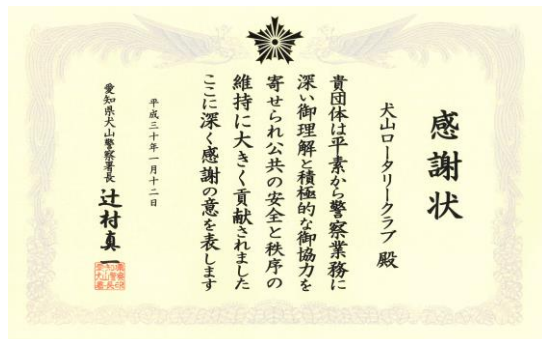 感謝状
犬山ロータリークラブ 殿
貴団体は平素から警察業務に
深い御理解と積極的な御協力を
寄せられ公共の安全と秩序の
維持に大きく貢献されました
ここに深く感謝の意を表します
平成三十年一月十二日
愛知県犬山警察署長 辻村真一